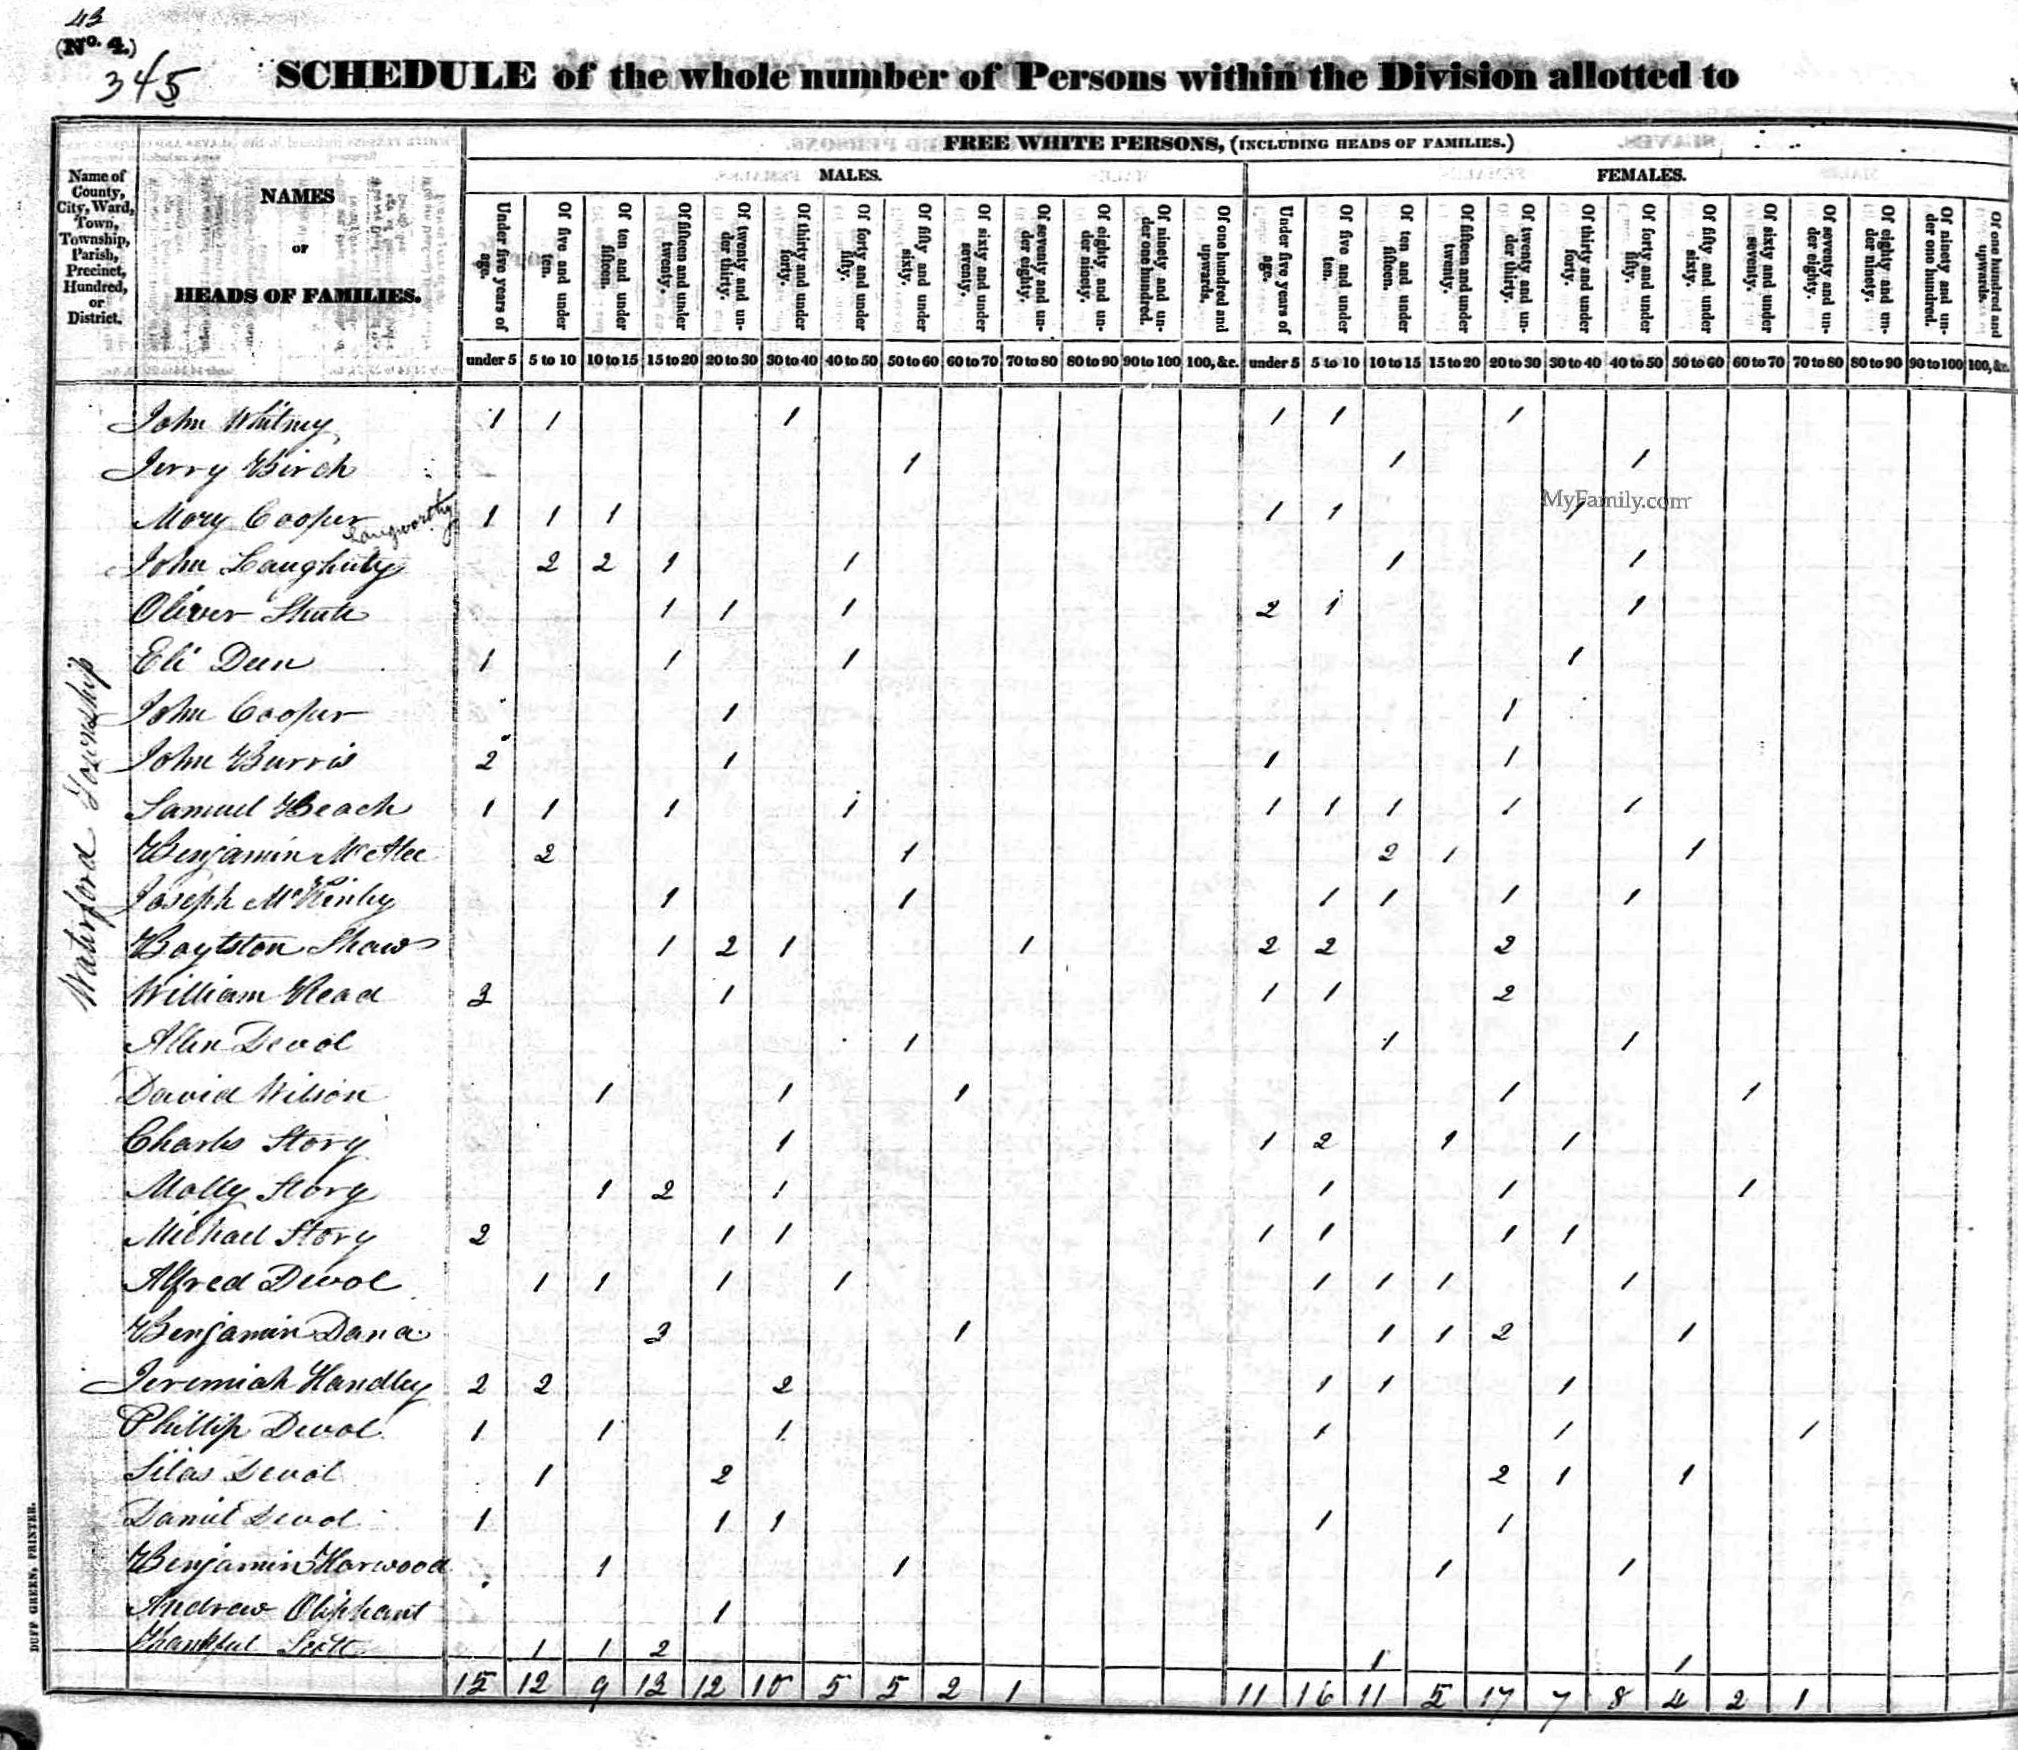 43
(No. 4.)
345
SCHEDULE of the whole number of Persons within the Division allotted to
FREE WHITE PERSONS, (INCLUDING HEADS OF FAMILIES.)
MALES. FEMALES.
Name of County, City, Ward, Town, Township, Parish, Precinct, Hundred, or District.
NAMES
OF
HEADS OF FAMILIES.
Under five years of age. Of five and under ten. Of ten and under fifteen. Of fifteen and under twenty. Of twenty and under thirty. Of thirty and under forty. Of forty and under fifty. Of fifty and under sixty. Of sixty and under seventy. Of seventy and under eighty. Of eighty and under ninety. Of ninety and under one hundred. Of one hundred and upwards. Under five years of age. Of five and under ten. Of ten and under fifteen. Of fifteen and under twenty. Of twenty and under thirty. Of thirty and under forty. Of forty and under fifty. Of fifty and under sixty. Of sixty and under seventy. Of seventy and under eighty. Of eighty and under ninety. Of ninety and under one hundred. Of one hundred and upwards.
under 5 5 to 10 10 to 15 15 to 20 20 to 30 30 to 40 40 to 50 50 to 60 60 to 70 70 to 80 80 to 90 90 to 100 100, &c. under 5 5 to 10 10 to 15 15 to 20 20 to 30 30 to 40 40 to 50 50 to 60 60 to 70 70 to 80 80 to 90 90 to 100 100, &c.
Waterford Township
John Whitney 1 1 1 1 1 1
Jerry Birch 1 1 1
MyFamily.com
Mary Cooper 1 1 1 1 1 1
Langworthy
John Laughuty 2 2 1 1 1 1
Oliver Shute 1 1 1 2 1 1
Eli Deen 1 1 1 1
John Cooper 1 1
John Burris 2 1 1 1
Samuel Beach 1 1 1 1 1 1 1 1 1
Benjamin McAtee 2 1 2 1 1
Joseph McKinley 1 1 1 1 1 1
Boylston Shaw 1 2 1 1 2 2 2
William Read 3 1 1 1 2
Allen Devol 1 1 1
David Wilson 1 1 1 1 1
Charles Story 1 1 2 1 1
Molly Story 1 2 1 1 1 1
Michael Story 2 1 1 1 1 1 1
Alfred Devol 1 1 1 1 1 1 1 1
Benjamin Dana 3 1 1 1 2 1
Jeremiah Handley 2 2 2 1 1 1
Phillip Devol 1 1 1 1 1 1
Silas Devol 1 2 2 1 1
Daniel Devol 1 1 1 1 1
Benjamin Harwood 1 1 1 1
Andrew Oliphant 1
Thankful Scott 1 1 2 1 1
15 12 9 13 12 10 5 5 2 1 11 16 11 5 17 7 8 4 2 1
DUFF GREEN, PRINTER.